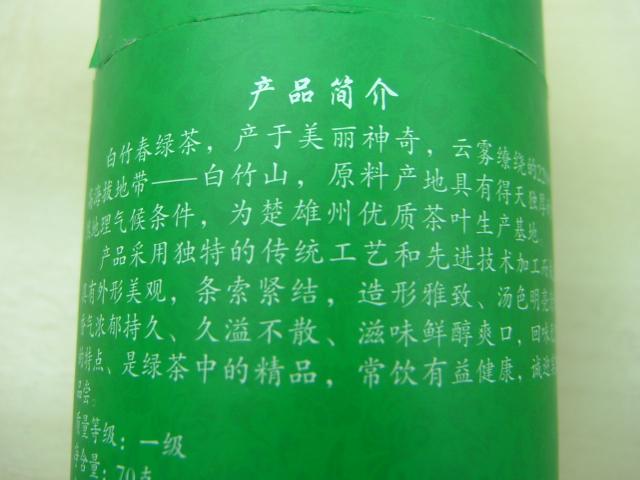 产品简介
白竹春绿茶，产于美丽神奇，云雾缭绕的22
高海拔地带——白竹山，原料产地具有得天独厚
然地理气候条件，为楚雄州优质茶叶生产基地
产品采用独特的传统工艺和先进技术加工而
具有外形美观，条索紧结，造形雅致、汤色明亮
香气浓郁持久、久溢不散、滋味鲜醇爽口，回味
的特点、是绿茶中的精品，常饮有益健康，诚邀
品尝。
质量等级：一级
净含量：70克